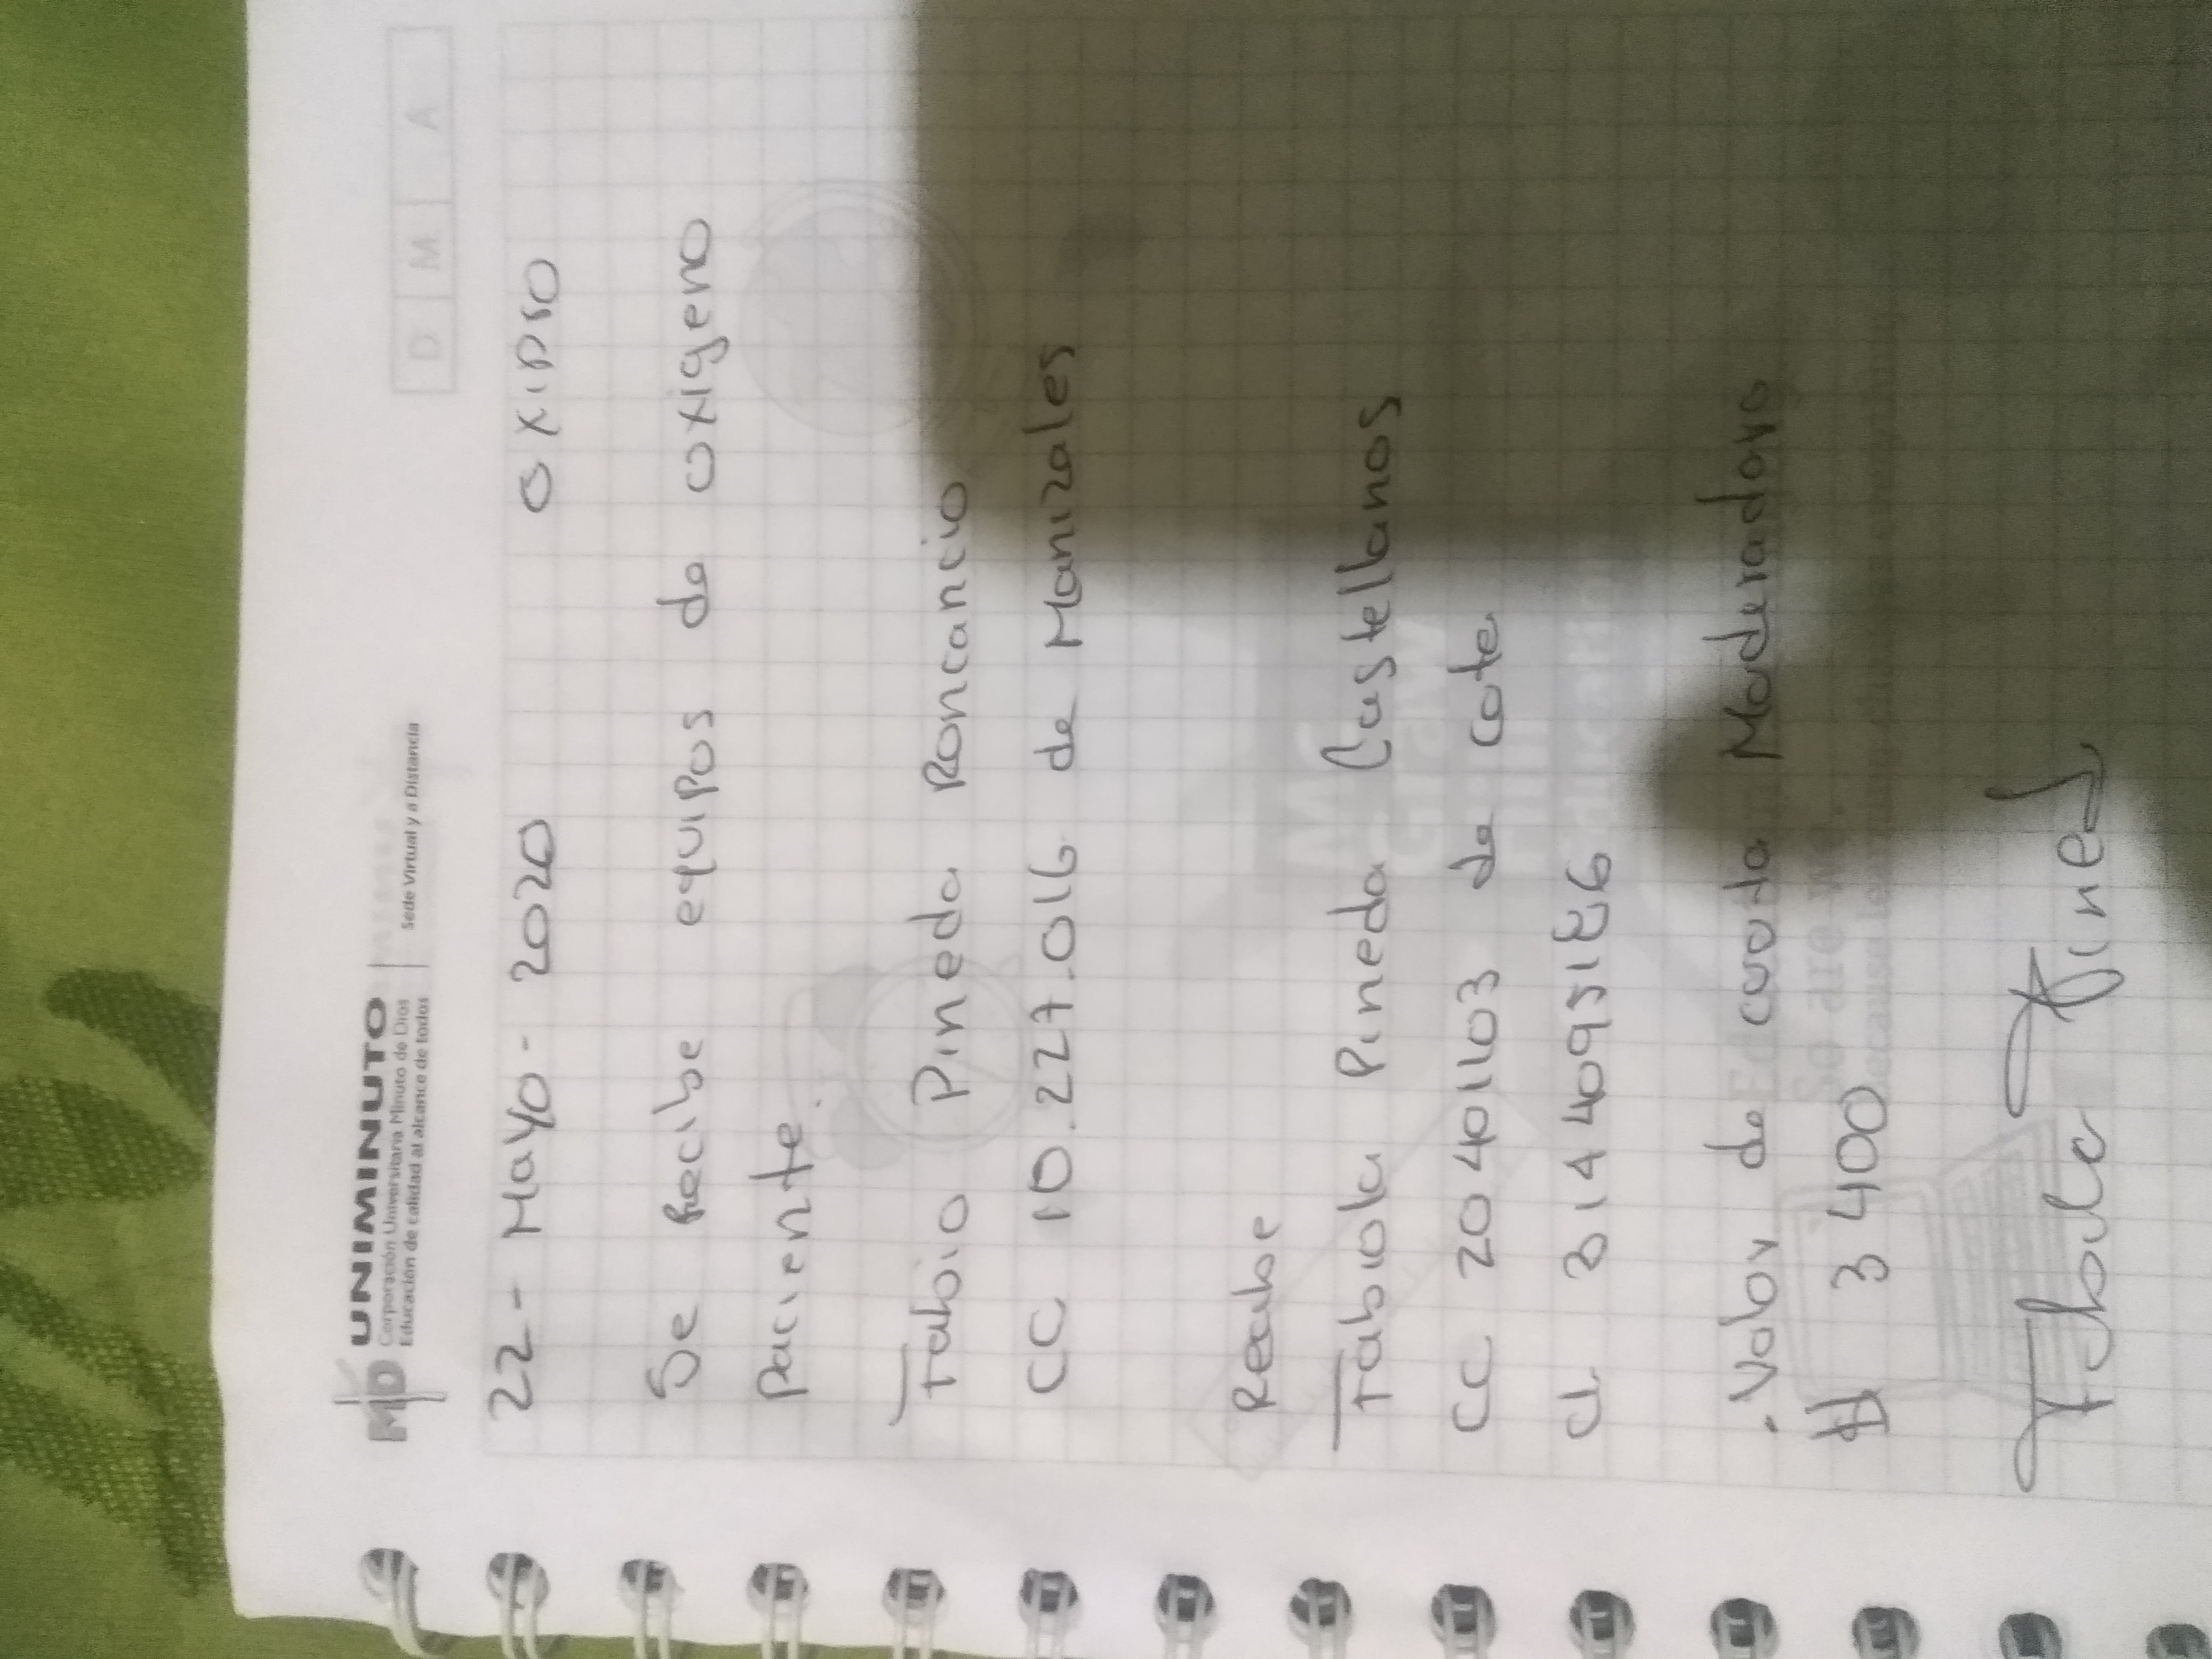 UNIMINUTO
Corporación Universitaria Minuto de Dios
Educación de calidad al alcance de todos
Sede Virtual y a Distancia
D M A
22- Mayo- 2020 OXIPRO
Se Recibe equipos de oxigeno
Paciente.
Fabio Pineda Roncancio
CC 10.227.016 de Manizales
Recibe
Fabiola Pineda Castellanos
CC 20 401103 de cota
cl 314 4095186
. Valor de cuota Moderadora
$ 3 400